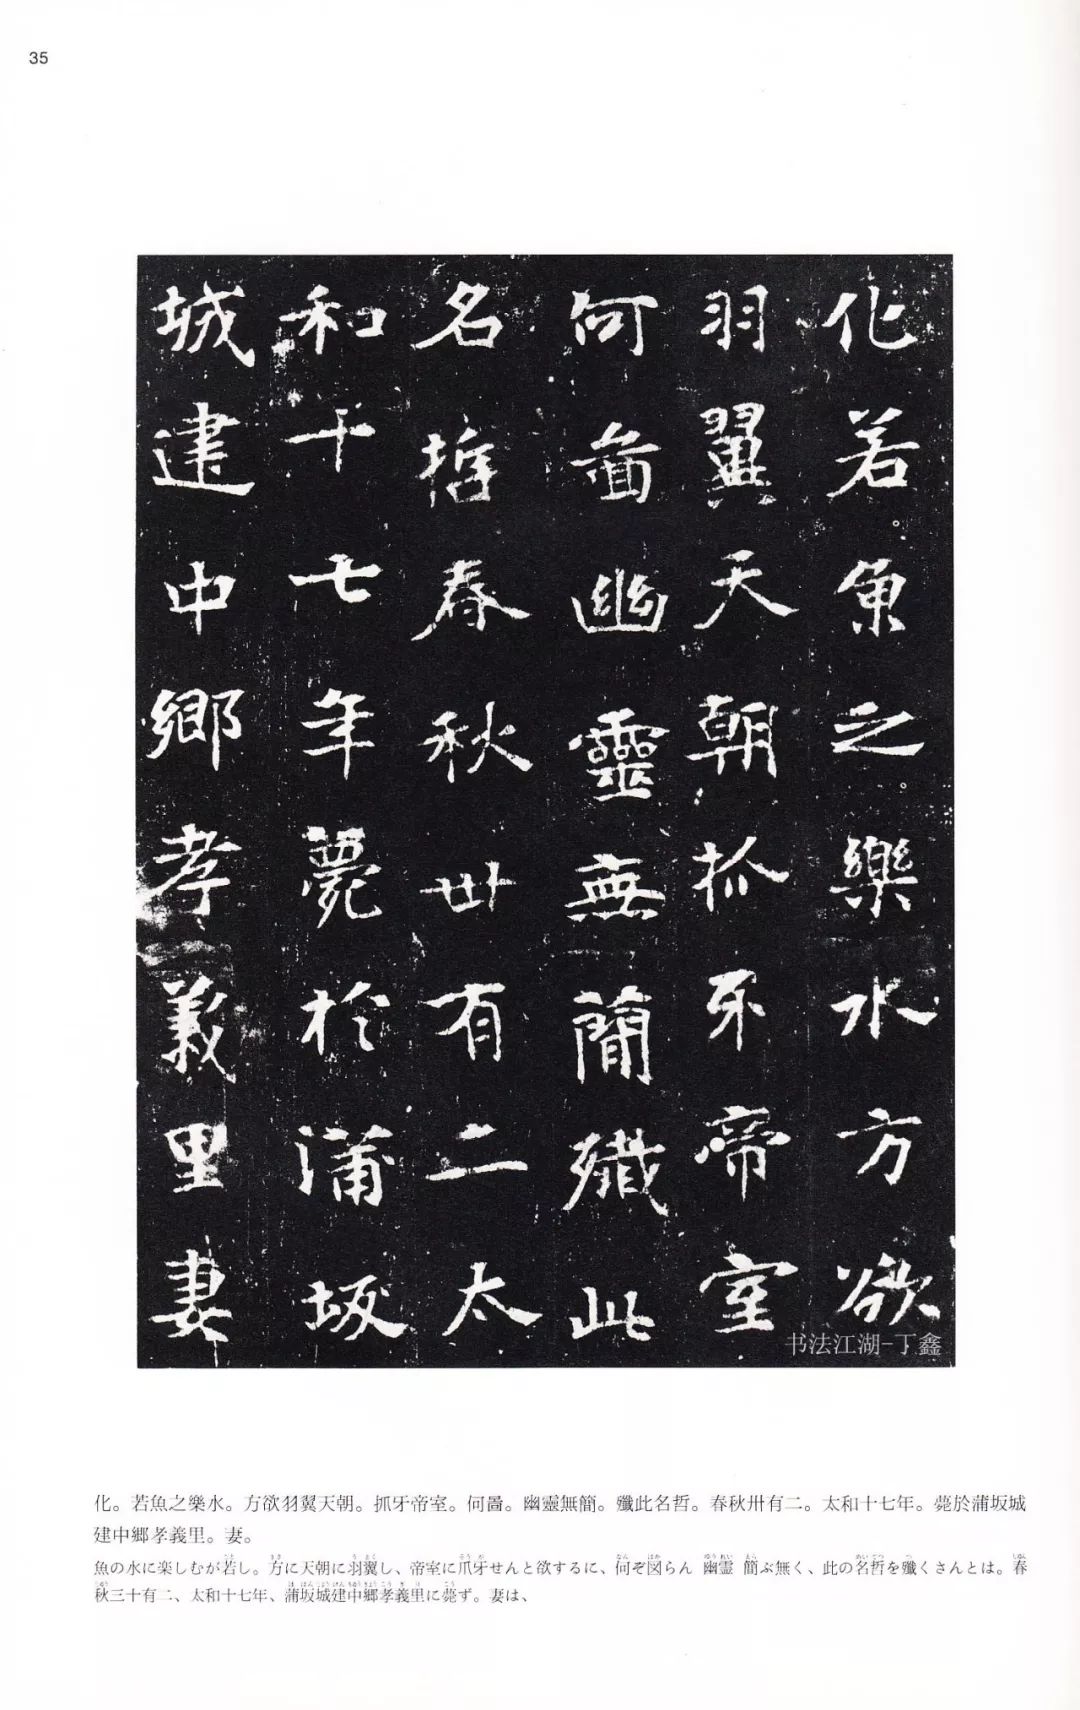 35
化若魚之樂水方欲
羽翼天朝抓牙帝室
何啚幽靈無簡殲此
名哲春秋卅有二太
和十七年薨於蒲坂
城建中鄉孝義里妻
书法江湖-丁鑫
化。若魚之樂水。方欲羽翼天朝。抓牙帝室。何啚。幽靈無簡。殲此名哲。春秋卅有二。太和十七年。薨於蒲坂城
建中鄉孝義里。妻。
魚の水に楽しむが若し。方に天朝に羽翼し、帝室に爪牙せんと欲するに、何ぞ図らん 幽霊 簡ぶ無く、此の名哲を殲くさんとは。春
秋三十有二、太和十七年、蒲坂城建中郷孝義里に薨ず。妻は、